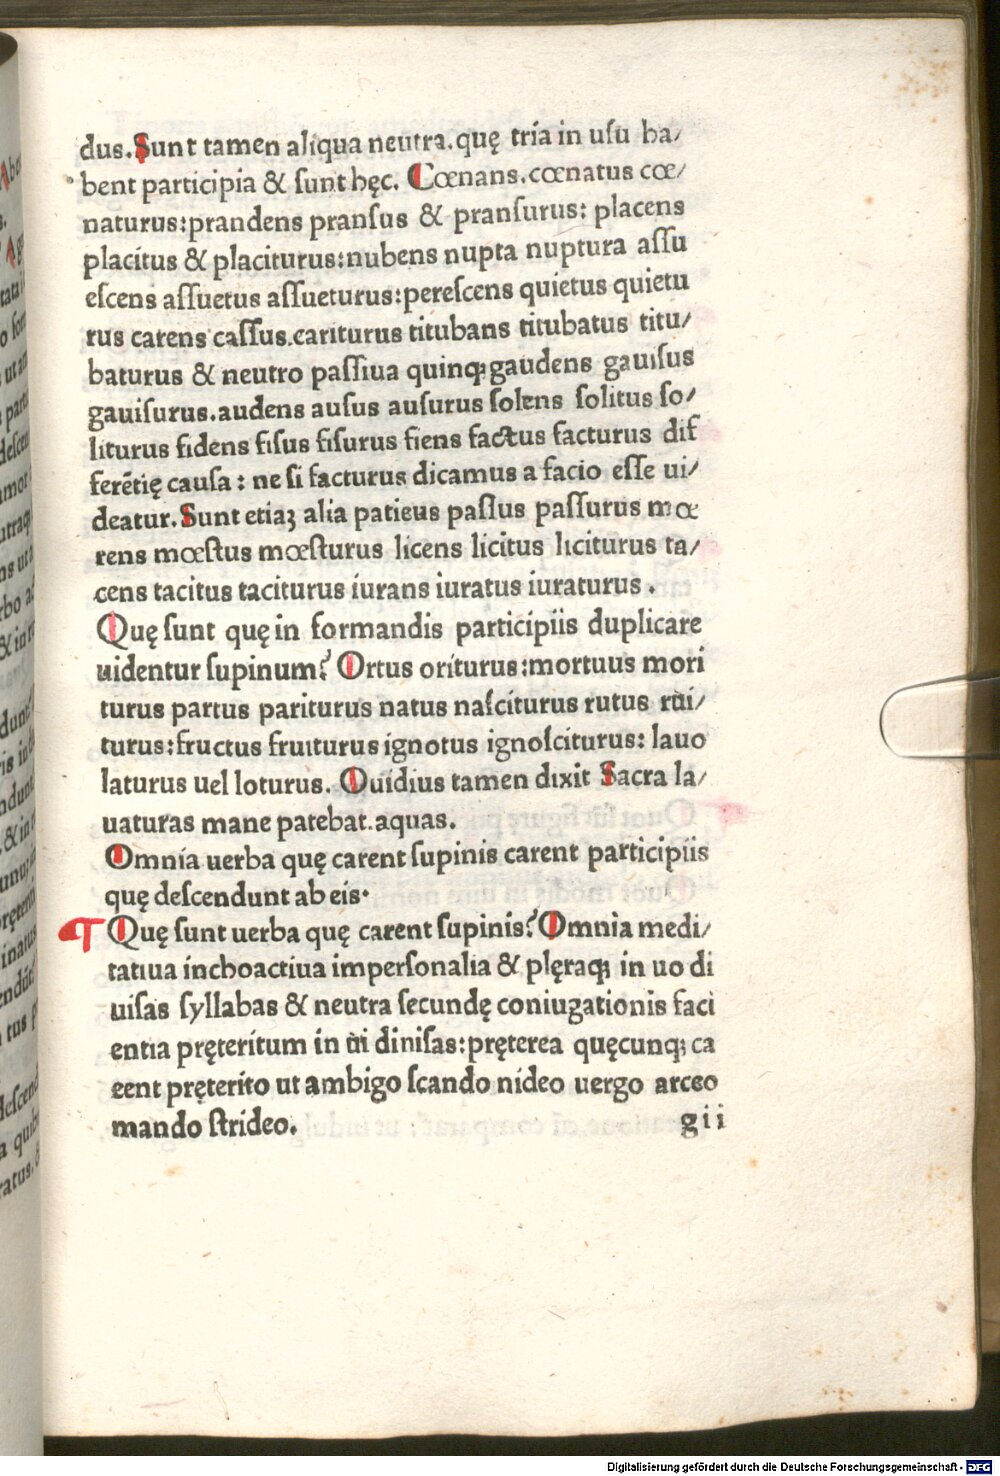 dus. Sunt tamen aliqua neutra. quę tria in uſu ha/
bent participia & ſunt hęc. Cœnans. cœnatus cœ/
naturus: prandens pranſus & pranſurus: placens
placitus & placiturus: nubens nupta nuptura aſſu
eſcens aſſuetus aſſueturus: pereſcens quietus quietu
rus carens caſſus. cariturus titubans titubatus titu/
baturus & neutro paſſiua quinq; gaudens gauiſus
gauiſurus. audens auſus auſurus ſolens ſolitus ſo/
liturus fidens fiſus fiſurus fiens factus facturus dif
ferētię cauſa: ne ſi facturus dicamus a facio eſſe ui/
deatur. Sunt etiaꝫ alia patieus paſſus paſſurus mœ
rens mœſtus mœſturus licens licitus liciturus ta/
cens tacitus taciturus iurans iuratus iuraturus.
Quę ſunt quę in formandis participiis duplicare
uidentur ſupinum? Ortus oriturus: mortuus mori
turus partus pariturus natus naſciturus rutus rūi/
turus: fructus fruiturus ignotus ignoſciturus: lauo
laturus uel loturus. Ouidius tamen dixit Sacra la/
uaturas mane patebat. aquas.
Omnia uerba quę carent ſupinis carent participiis
quę deſcendunt ab eis.
¶ Quę ſunt uerba quę carent ſupinis? Omnia medi/
tatiua inchoactiua imperſonalia & plęraq; in uo di
uiſas ſyllabas & neutra ſecundę coniugationis faci
entia pręteritum in ūi diniſas: pręterea quęcunq; ca
eent pręterito ut ambigo ſcando nideo uergo arceo
mando ſtrideo.
g i i
Digitalisierung gefördert durch die Deutsche Forschungsgemeinschaft - DFG